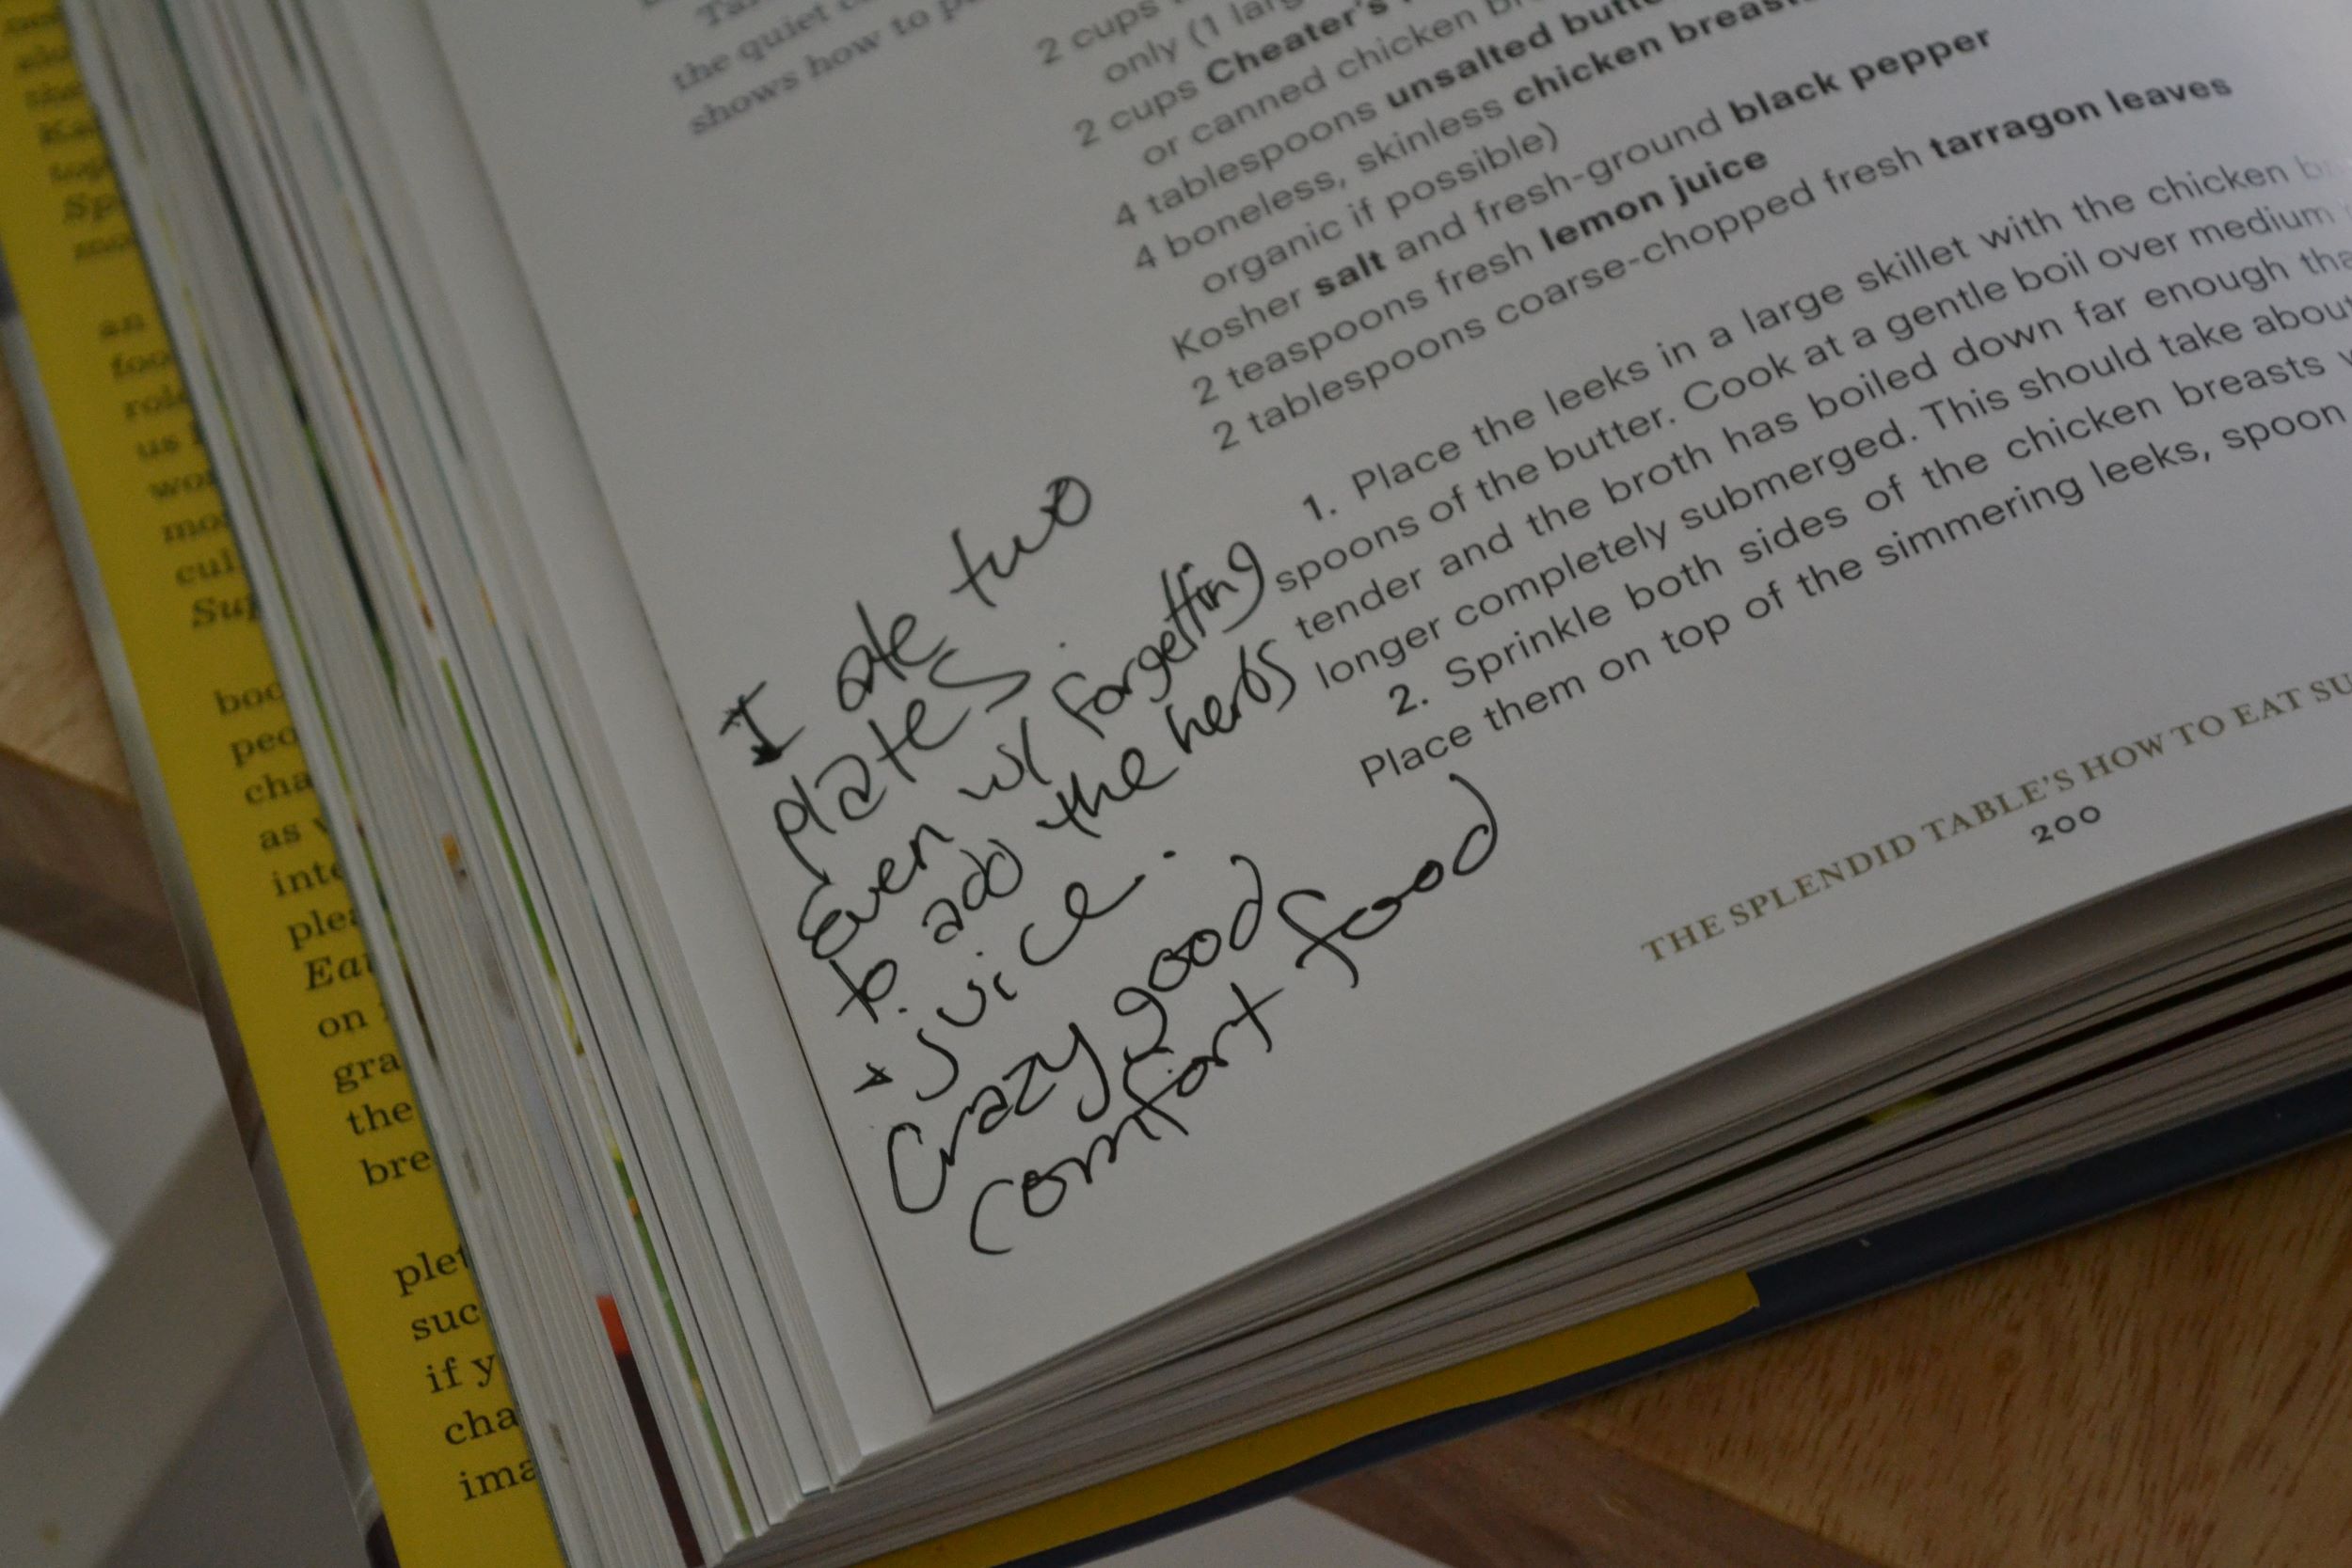 the quiet
shows how to
2 cups
only (1
2 cups Cheater's
or canned chicken
4 tablespoons unsalted
4 boneless, skinless chicken
organic if possible)
Kosher salt and fresh-ground black pepper
2 teaspoons fresh lemon juice
2 tablespoons coarse-chopped fresh tarragon leaves
1. Place the leeks in a large skillet with the chicken
spoons of the butter. Cook at a gentle boil over medium
tender and the broth has boiled down far enough
longer completely submerged. This should take
2. Sprinkle both sides of the chicken breasts
Place them on top of the simmering leeks, spoon
THE SPLENDID TABLE'S HOW TO EAT SU
200
I ate two
plates.
Even w/ forgetting
to add the herbs
+ juice.
Crazy good
comfort food
an
foo
role
us
wo
mo
cul
Su
boo
peo
cha
as
inte
plea
Eat
on
gra
the
bre
plet
suc
if y
cha
ima